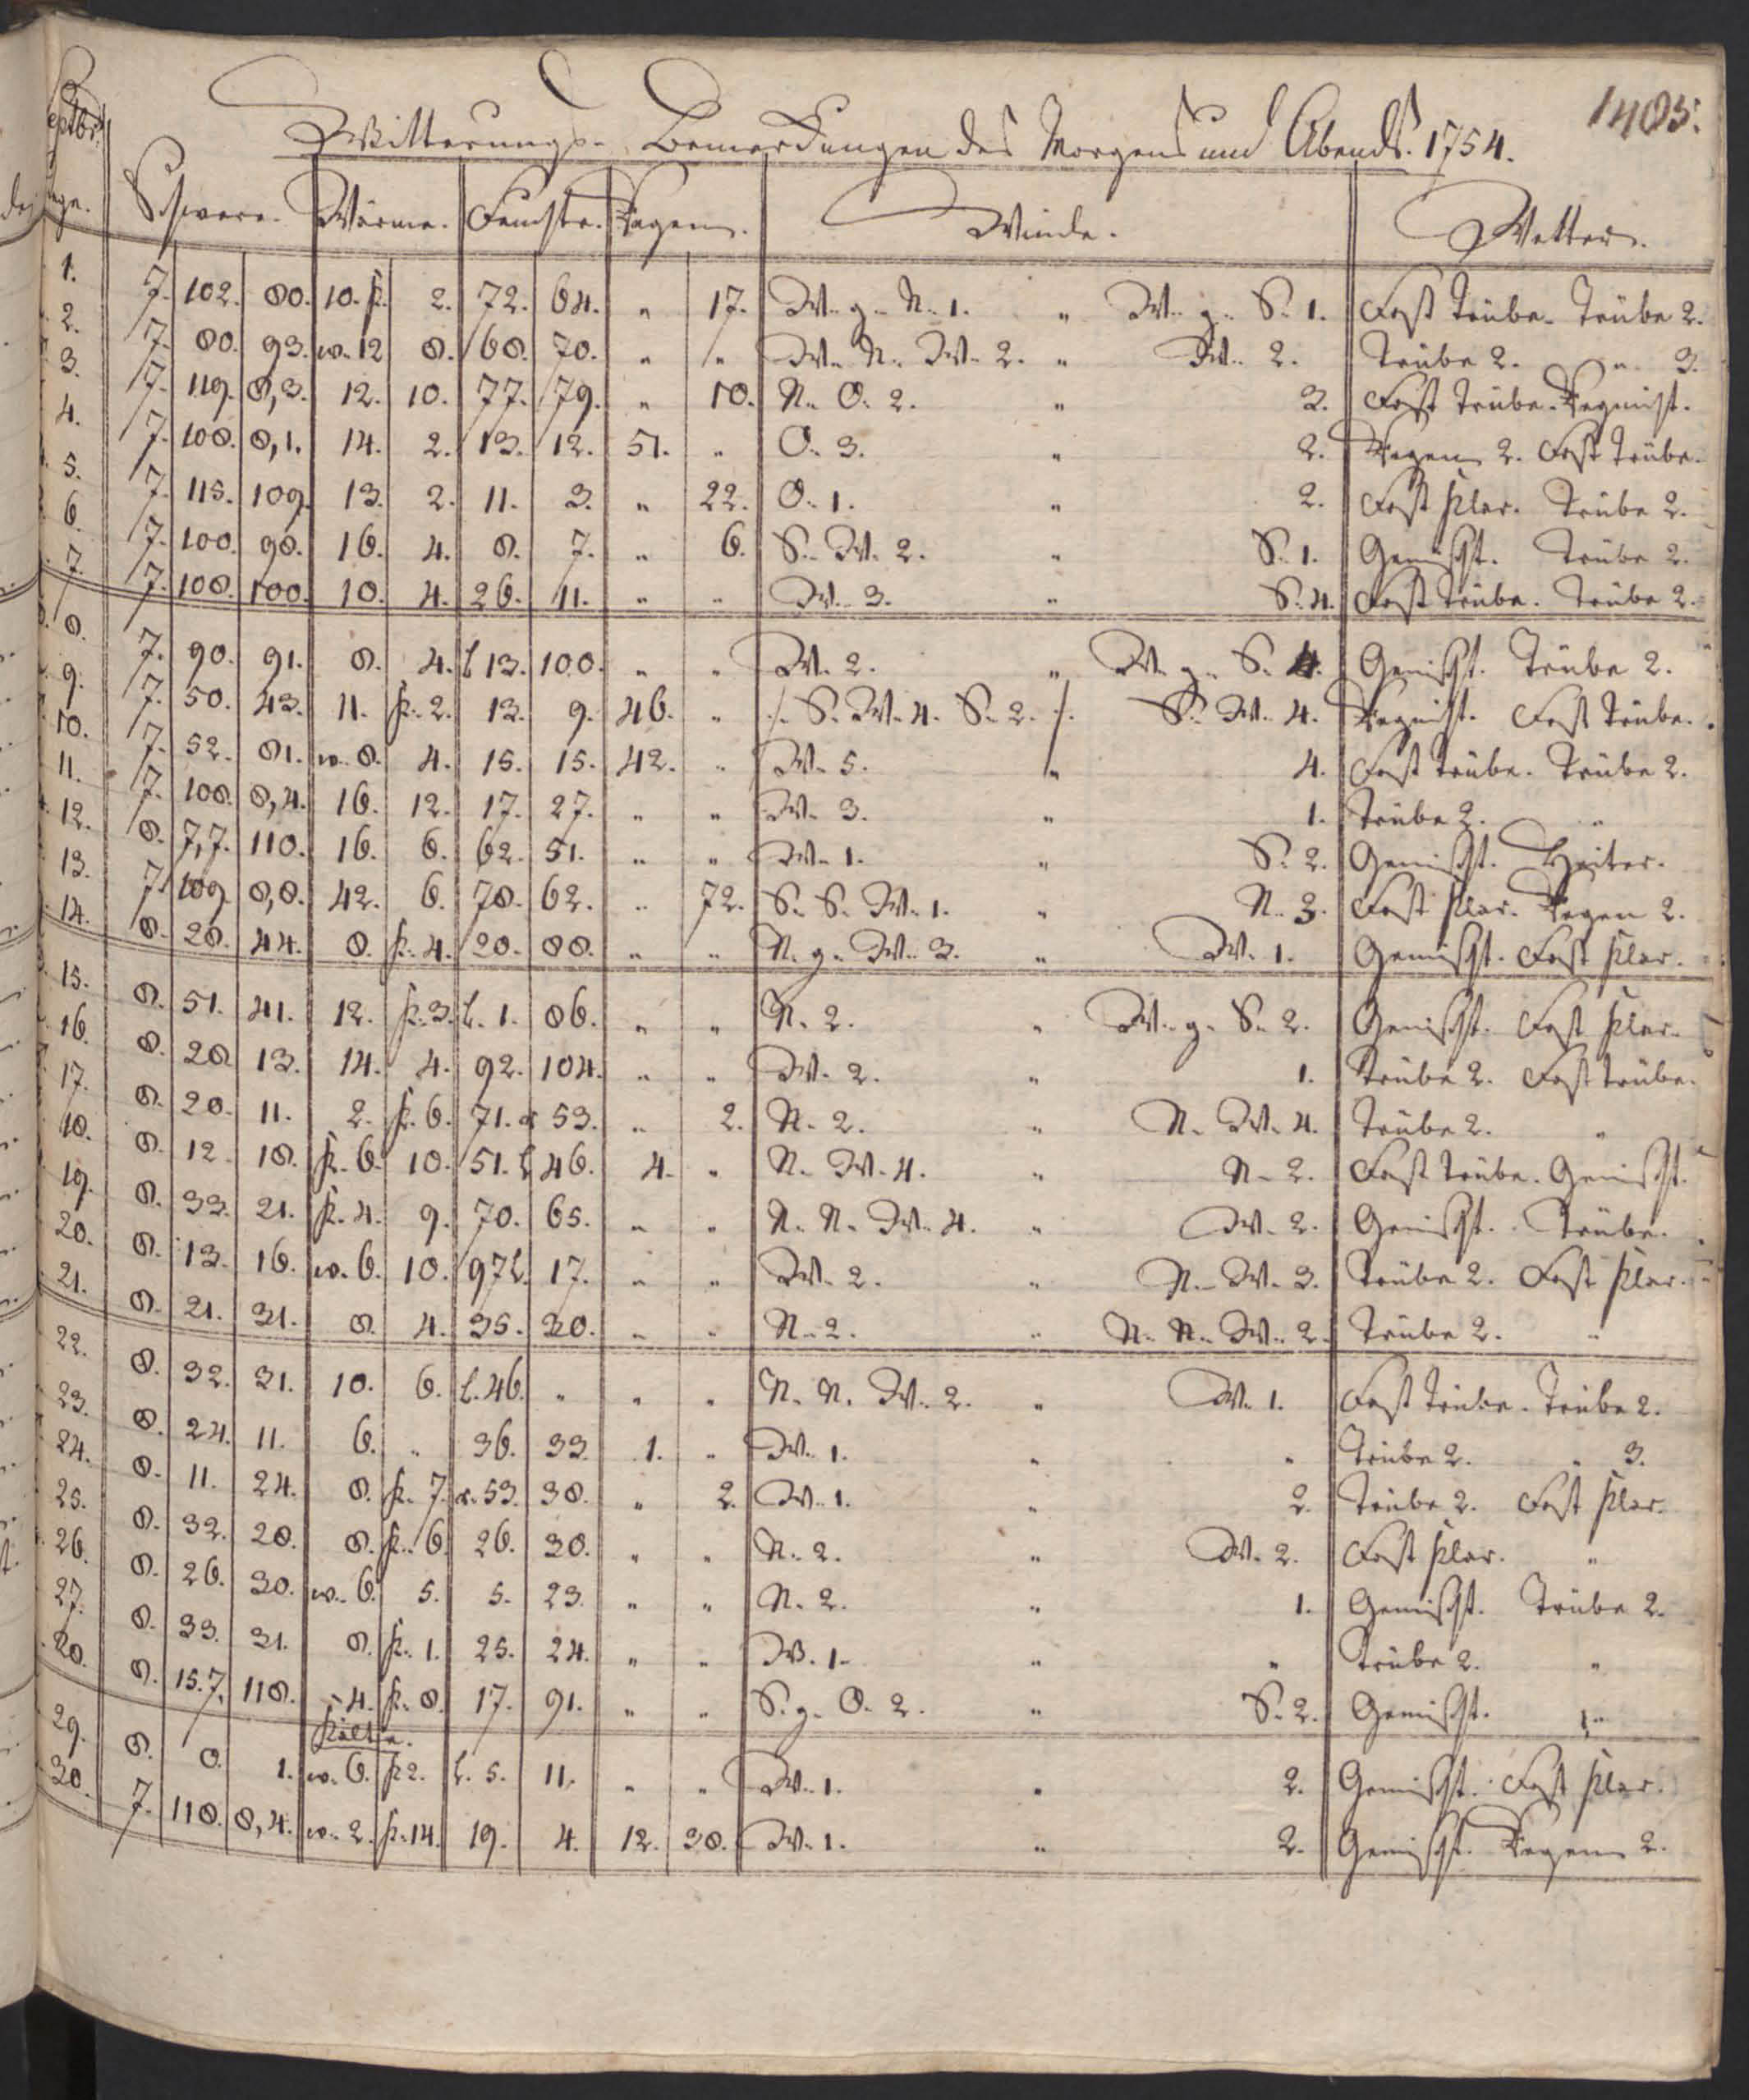 1405.
Septbr.
Witterungs- Bemerkungen des Morgens und Abends. 1754.
Tage. Schwere. Wärme. Feuchte. Regen. Winde. Wetter.
1. 7. 102. 80. 10. k. 2. 72. 64. " 17. W. g. N. 1. " W. g. S. 1. Fast Trübe. Trübe 2.
2. 7. 80. 93. w. 12 8. 68. 70. " " W. N. W. 2. " W. 2. Trübe 2. " 3.
3. 7. 119. 8,3. 12. 10. 77. 79. " 18. N. O. 2. " 3. Fast Trübe. Regnicht.
4. 7. 108. 8,1. 14. 2. 13. 12. 51. " O. 3. " 2. Regen 2. Fast Trübe.
5. 7. 115. 109. 13. 2. 11. 3. " 22. O. 1. " 2. Fast klar. Trübe 2.
6. 7. 100. 98. 16. 4. 8. 7. " 6. S. W. 2. " S. 1. Gemischt. Trübe 2.
7. 7. 108. 100. 10. 4. 26. 11. " " W. 3. " S. 4. Fast Trübe. Trübe 2.
8. 7. 90. 91. 8. 4. l 13. 100. " " W. 2. " W. g. S. 4. Gemischt. Trübe 2.
9. 7. 50. 43. 11. k. 2. 13. 9. 46. " ./. S. W. 4. S. 2. ./. S. W. 4. Regnicht. Fast Trübe.
10. 7. 52. 81. w. 8. 4. 15. 15. 42. " W. 5. " 4. Fast Trübe. Trübe 2.
11. 7. 108. 8,4. 16. 12. 17. 27. " " W. 3. " 1. Trübe 2. "
12. 8. 7,7. 110. 16. 6. 62. 51. " " W. 1. " S. 2. Gemischt. Heiter.
13. 7. 109. 8,8. 42. 6. 78. 62. " 72. S. S. W. 1. " N. 3. Fast klar. Regen 2.
14. 8. 28. 44. 8. k. 4. 20. 88. " " N. g. W. 3. " W. 1. Gemischt. Fast klar.
15. 8. 51. 41. 12. k. 3. l. 1. 86. " " N. 2. " W. g. S. 2. Gemischt. Fast klar.
16. 8. 28. 13. 14. 4. 92. 104. " " W. 2. " 1. Trübe 2. Fast trübe.
17. 8. 20. 11. 2. k. 6. 71. r 53. " 2. N. 2. " N. W. 4. Trübe 2. "
18. 8. 12. 18. k. 6. 10. 51. l 46. 4. " N. W. 4. " N. 2. Fast Trübe. Gemischt.
19. 8. 33. 21. k. 4. 9. 70. 65. " " N. N. W. 4. " W. 2. Gemischt. Trübe.
20. 8. 13. 16. w. 6. 10. 97 l. 17. " " W. 2. " N. W. 3. Trübe 2. Fast klar.
21. 8. 21. 31. 8. 4. 35. 20. " " N. 2. " N. N. W. 2. Trübe 2. "
22. 8. 32. 31. 10. 6. l. 46. " " " N. N. W. 2. " W. 1. Fast Trübe. Trübe 2.
23. 8. 24. 11. 6. " 36. 33. 1. " W. 1. " " Trübe 2. " 3.
24. 8. 11. 24. 8. k. 7. r. 53. 38. " 2. W. 1. " 2. Trübe 2. Fast klar.
25. 8. 32. 28. 8. k. 6. 26. 30. " " N. 2. " W. 2. Fast klar. "
26. 8. 26. 30. w. 6. 5. 5. 23. " " N. 2. " 1. Gemischt. Trübe 2.
27. 8. 33. 31. 8. k. 1. 25. 24. " " W. 1. " " Trübe 2. "
28. 8. 15. 7. 118. 4. k. 8. 17. 91. " " S. g. O. 2. " S. 2. Gemischt. "
Kälte.
29. 8. 0. 1. w. 6. k 2. l. 5. 11. " " W. 1. " 2. Gemischt. Fast klar.
30. 7. 118. 8,4. w. 2. k. 14. 19. 4. 12. 38. W. 1. " 2. Gemischt. Regen 2.